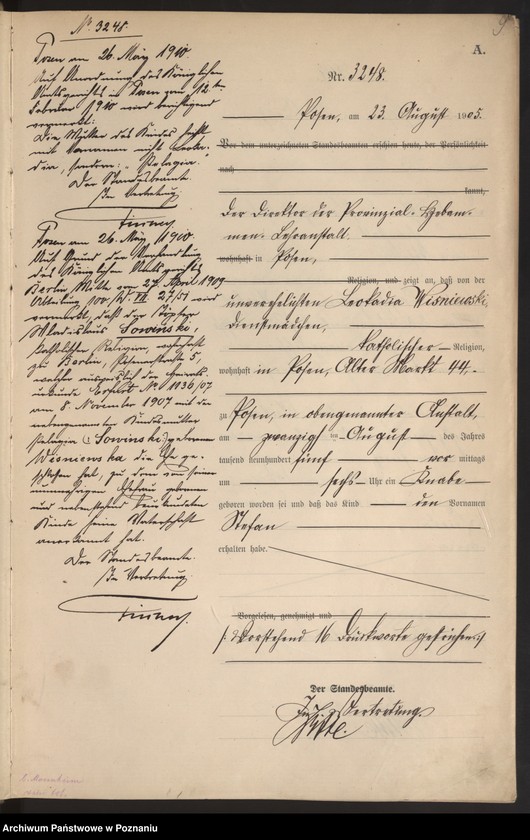 9
A.
Nr. 3248.
Posen, am 23. August 1905.
Vor dem unterzeichneten Standesbeamten erschien heute, der Persönlichkeit
nach
kannt,
Der Direktor der Provinzial-Hebam-
men-Lehranstalt
wohnhaft in Posen,
Religion, und zeigt an, daß von der
unverehelichten Leokadia Wisniewski,
Dienstmädchen,
katholischer Religion,
wohnhaft in Posen, Alter Markt 44.
zu Posen, in obengenannter Anstalt,
am zwanzigsten August des Jahres
tausend neunhundert fünf vor mittags
um sechs Uhr ein Knabe
geboren worden sei und daß das Kind den Vornamen
Stefan
erhalten habe.
Vorgelesen, genehmigt und
/: Vorstehend 16 Druckworte gestrichen :/
Der Standesbeamte.
In Vertretung.
No 3248.
Posen am 26. März 1910.
Auf Anordnung des Königlichen
Amtsgerichts in Posen vom 12ten
Februar 1910 wird berichtigend
vermerkt:
Die Mutter des Kindes heißt
mit Vornamen nicht Leoka-
dia, sondern: "Pelagia."
Der Standesbeamte.
In Vertretung
Posen am 26. März 1910.
Auf Grund der Verhandlung
des Königlichen Amtsgerichts
Berlin Mitte vom 27. April 1909
Abteilung 100, VII 27/51 wird
vermerkt, daß der
Wladislaus Sowinski,
katholischer Religion, wohnhaft
zu Berlin, 5,
welcher der Heirats-
urkunde Erfurt No 1036/07
am 8. November 1907 mit der
nebengenannten Kindesmutter
Pelagia Sowinski, geborene
Wisniewska die Ehe ge-
schlossen hat, zu dem von seiner
nunmehrigen Ehefrau geborenen
und nebenstehend beurkundeten
Kinde seine Vaterschaft
anerkannt hat.
Der Standesbeamte.
In Vertretung.
Archiwum Państwowe w Poznaniu